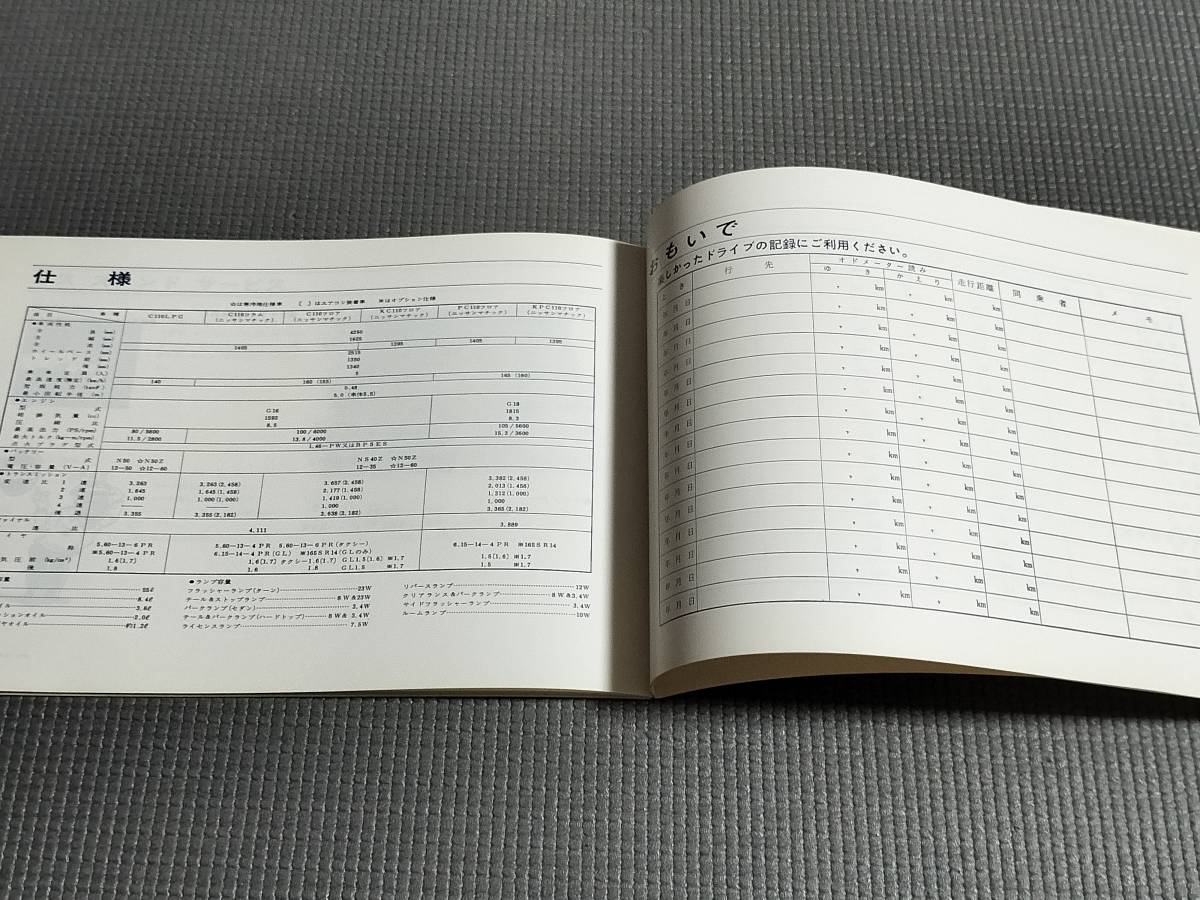 仕様
☆は寒冷地仕様車 〔 〕はエアコン装着車 ※はオプション仕様
項目 車種 C110LPG C110コラム (ニッサンマチック) C110フロア (ニッサンマチック) KC110フロア (ニッサンマチック) PC110フロア (ニッサンマチック) KPC110フロア (ニッサンマチック)
●車両性能
全長(mm) 4250
全幅(mm) 1625
全高(mm) 1405 1395 1405 1395
ホイールベース(mm) 2515
トレッド前(mm) 1350
後(mm) 1340
乗車定員(人) 5
最高速度(推定)(km/h) 140 160 (155) 165 (160)
登坂能力(tanθ) 0.48
最小回転半径(m) 5.0 (車体5.5)
●エンジン
型式 G16 G18
総排気量(cc) 1593 1815
圧縮比 8.5 8.3
最高出力(PS/rpm) 80/5600 100/6000 105/5600
最大トルク(kg-m/rpm) 11.5/2800 13.8/4000 15.3/3600
点火プラグ型式 L46-PW又はBP5ES
●バッテリー
型式 N50 ☆N50Z NS40Z ☆N50Z
電圧・容量(V-A) 12-50 ☆12-60 12-35 ☆12-60
●トランスミッション
変速比 1速 3.263 3.263(2.458) 3.657(2.458) 3.382(2.458)
2速 1.645 1.645(1.458) 2.177(1.458) 2.013(1.458)
3速 1.000 1.000(1.000) 1.419(1.000) 1.312(1.000)
4速 ―― ―― 1.000 1.000
後退 3.355 3.355(2.182) 3.638(2.182) 3.365(2.182)
ァイナル
速比 4.111 3.889
イヤ
5.60-13-6PR 5.60-13-4PR 5.60-13-6PR(タクシー) 6.15-14-4PR ※165SR14
※5.60-13-4PR 6.15-14-4PR(GL) ※165SR14(GLのみ)
気圧前(kg/cm²) 1.6〔1.7〕 1.6〔1.7〕 タクシー1.6〔1.7〕 GL1.5〔1.6〕 ※1.7 1.5〔1.6〕 ※1.7
後 1.8 1.6 1.8 GL1.5 ※1.7 1.5 ※1.7
容量
25ℓ
6.4ℓ
イル 3.8ℓ
ションオイル 2.0ℓ
ヤオイル 約1.2ℓ
●ランプ容量
フラッシャーランプ(ターン) 23W
テール&ストップランプ 8W&23W
パークランプ(セダン) 3.4W
テール&パークランプ(ハードトップ) 8W&3.4W
ライセンスランプ 7.5W
リバースランプ 12W
クリアランス&パークランプ 8W&3.4W
サイドフラッシャーランプ 3.4W
ルームランプ 10W
おもいで
楽しかったドライブの記録にご利用ください。
とき 行先 オドメーター読み 走行距離 同乗者 メモ
ゆき かえり
年月日 , km , km km
年月日 , km , km km
年月日 , km , km km
年月日 , km , km km
年月日 , km , km km
年月日 , km , km km
年月日 , km , km km
年月日 , km , km km
年月日 , km , km km
年月日 , km , km km
年月日 , km , km km
年月日 , km , km km
年月日 , km , km km
年月日 , km , km km
年月日 , km , km km
年月日 , km , km km